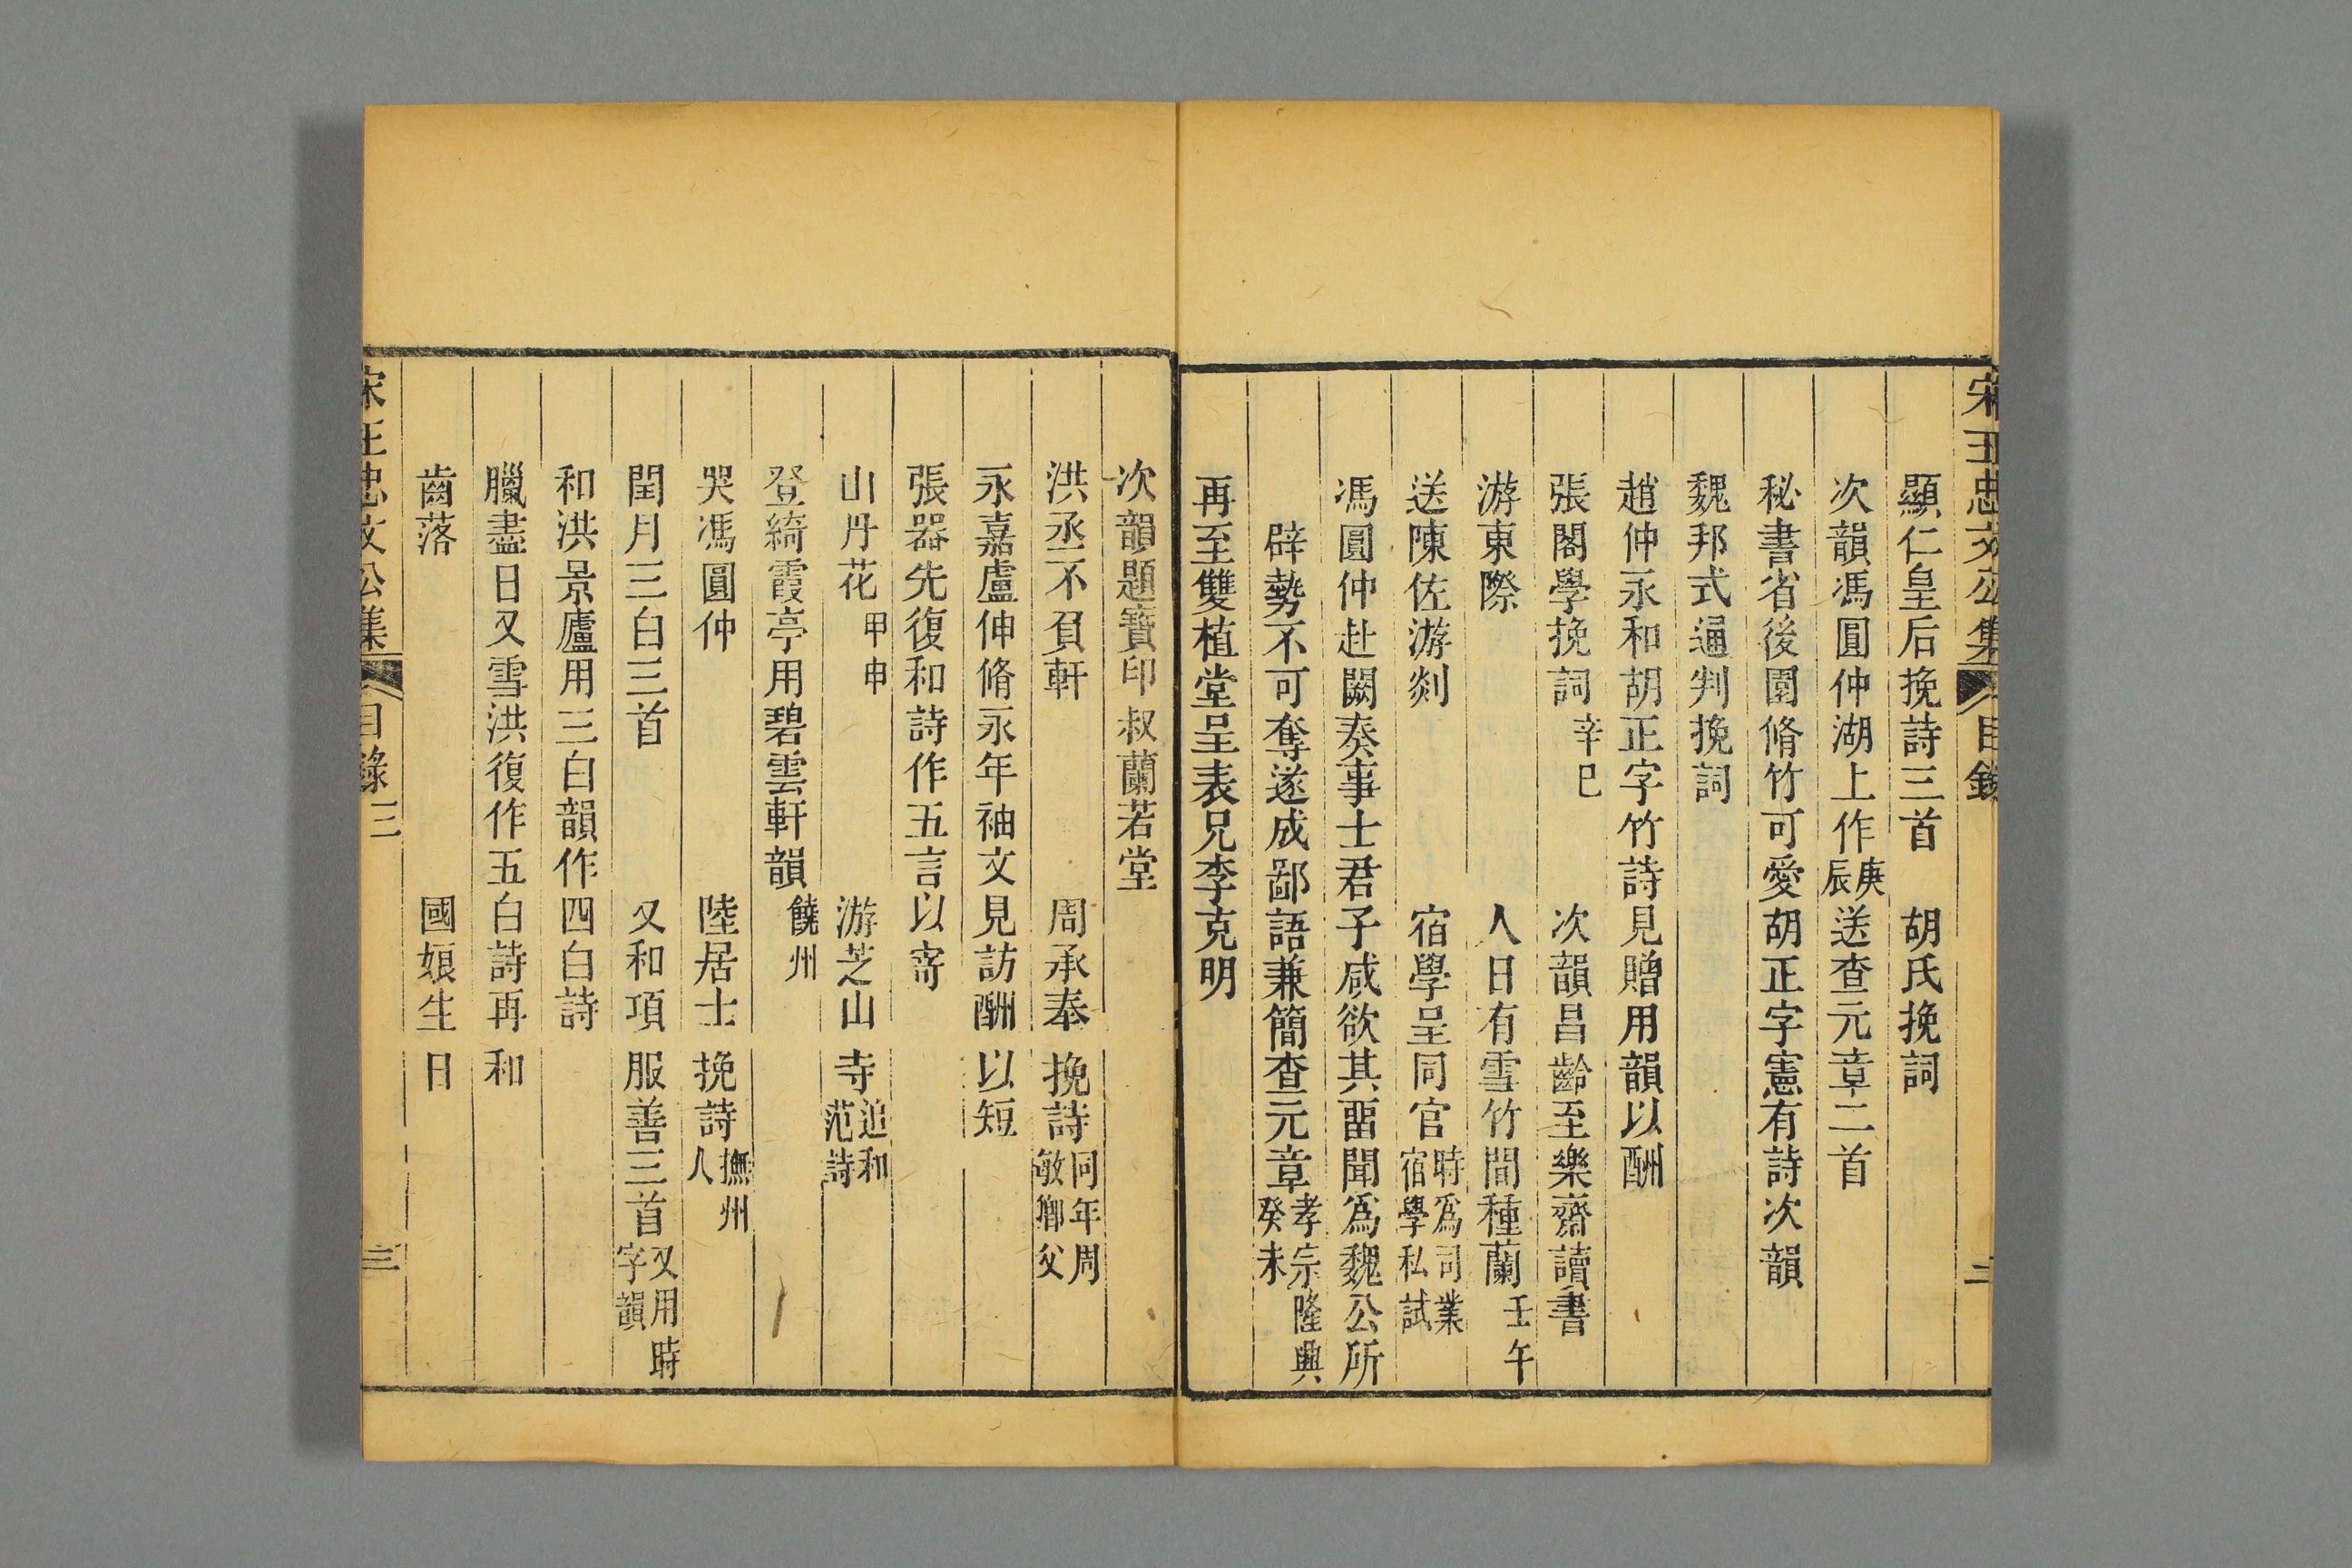 宋王忠文公集 目錄 二
顯仁皇后挽詩三首 胡氏挽詞
次韻馮圓仲湖上作庚辰 送查元章二首
秘書省後園脩竹可愛胡正字憲有詩次韻
魏邦式通判挽詞
趙仲永和胡正字竹詩見贈用韻以酬
張閣學挽詞辛巳 次韻昌齡至樂齋讀書
游東際 人日有雪竹間種蘭壬午
送陳佐游剡 宿學呈同官時爲司業宿學私試
馮圓仲赴闕奏事士君子咸欲其畱聞爲魏公所
辟勢不可奪遂成鄙語兼簡查元章孝宗隆興癸未
再至雙植堂呈表兄李克明
次韻題寶印叔蘭若堂
洪丞不負軒 周承奉挽詩同年周敏鄉父
永嘉盧伸脩永年袖文見訪酬以短
張器先復和詩作五言以寄
山丹花甲申 游芝山寺追和范詩
登綺霞亭用碧雲軒韻饒州
哭馮圓仲 陸居士挽詩撫州人
閏月三白三首 又和項服善三首又用時字韻
和洪景廬用三白韻作四白詩
臘盡日又雪洪復作五白詩再和
齒落 國娘生日
宋王忠文公集 目錄三 三